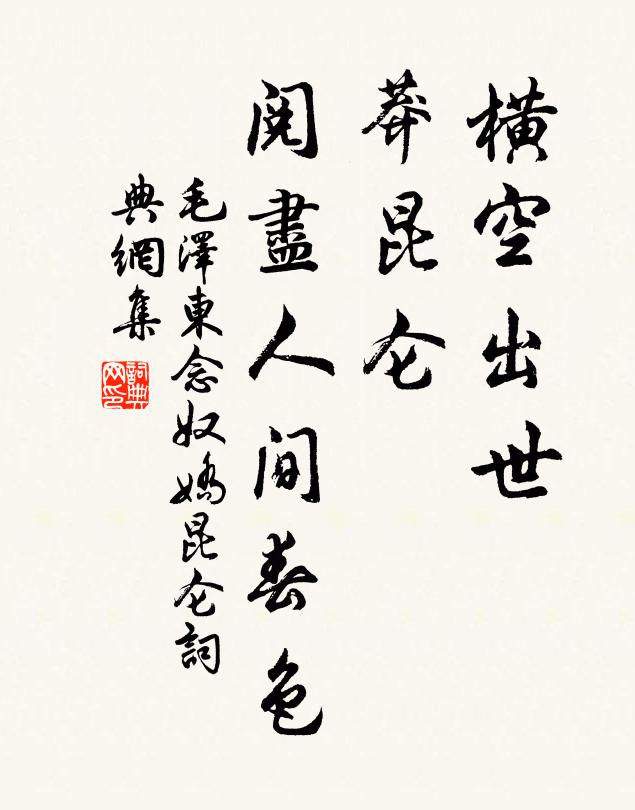 橫空出世
莽昆仑
閱盡人間春色
毛澤東念奴嬌昆仑詞
典網集
詞典网印